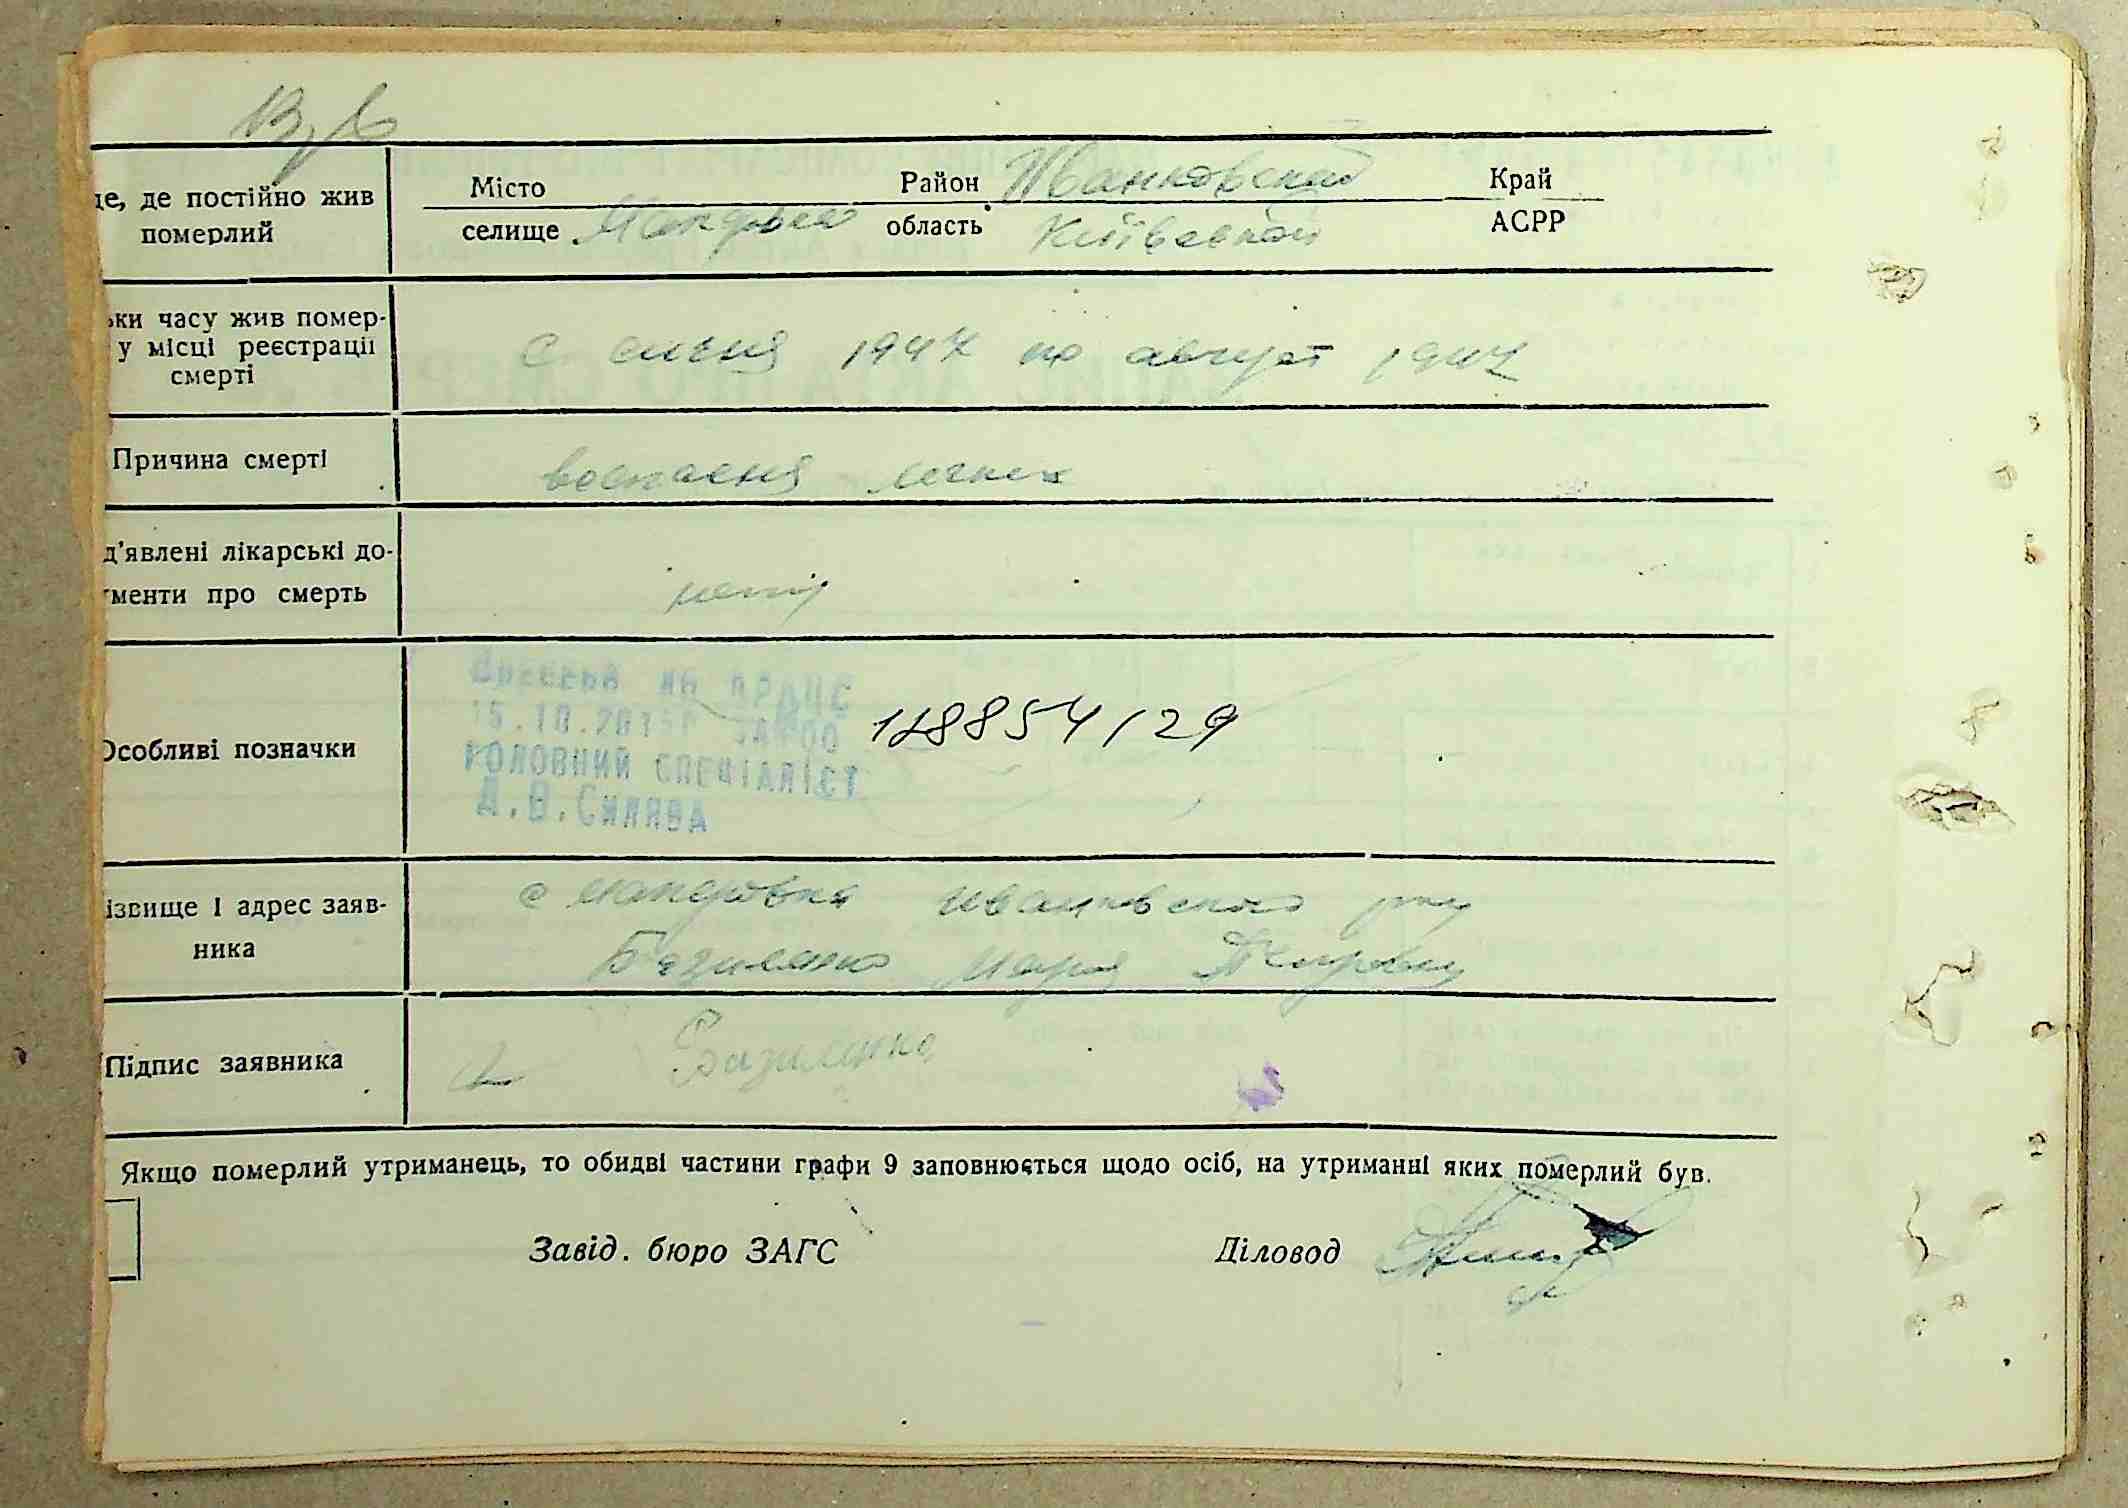 це, де постійно жив
померлий
Місто Район Иванковский Край
селище область Київской АСРР
ьки часу жив помер-
у місці реєстрації
смерті
с 1947 по август 1947
Причина смерті
воспаленя легких
д'явлені лікарські до-
менти про смерть
нету
Особливі позначки
Внесено на ДРАЦС
15.10.201
ГОЛОВНИЙ СПЕЦІАЛІСТ
118854/29
ізвище і адрес заяв-
ника
с Иванковского р-ну
Базиленко Мария Петровна
Підпис заявника
Базиленко
Якщо померлий утриманець, то обидві частини графи 9 заповнюється щодо осіб, на утриманні яких померлий був.
Завід. бюро ЗАГС Діловод